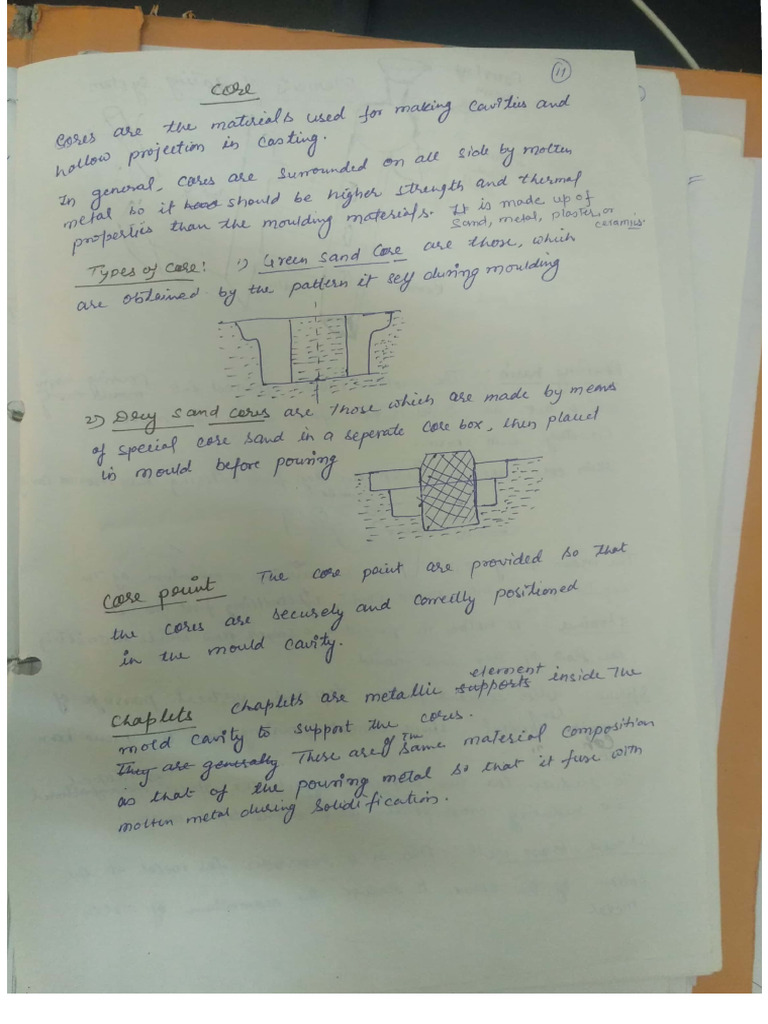 11
Core
Cores are the materials used for making cavities and
hollow projection in casting.
In general, cores are surrounded on all side by molten
metal so it should be higher strength and thermal
properties than the moulding materials. It is made up of
sand, metal, plaster, or
ceramics.
Types of core: 1) Green sand core are those, which
are obtained by the pattern it self during moulding
2) Dry sand cores are those which are made by means
of special core sand in a seperate core box, then placed
in mould before pouring
Core point The core point are provided so that
the cores are securely and correctly positioned
in the mould cavity.
element
Chaplets chaplets are metallic supports inside the
mold cavity to support the cores.
They are generally These are of the same material composition
as that of the pouring metal so that it fuse with
molten metal during solidification.